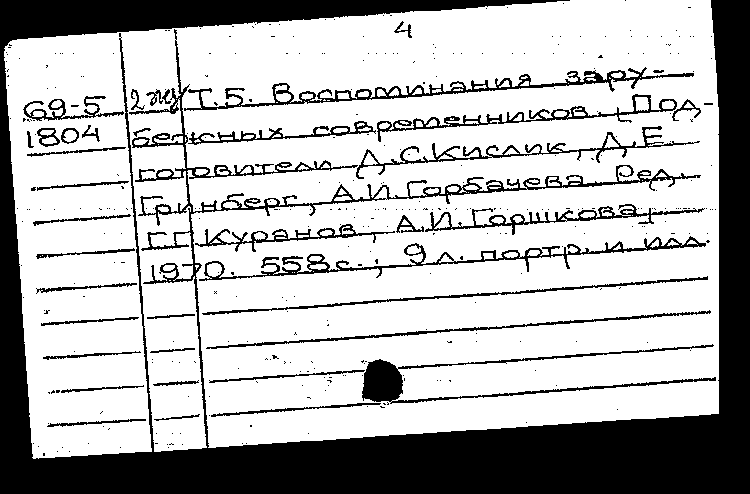 4
69-5 2 экз Т.5. Воспоминания зару-
1804 бежных современников. [Под-
готовители Д.С.Кислик, Д.Е.
Гринберг, А.И.Горбачева. Ред.
Г.Г.Куранов, А.И.Горшкова]
1970. 558с.; 9 л. портр. и илл.